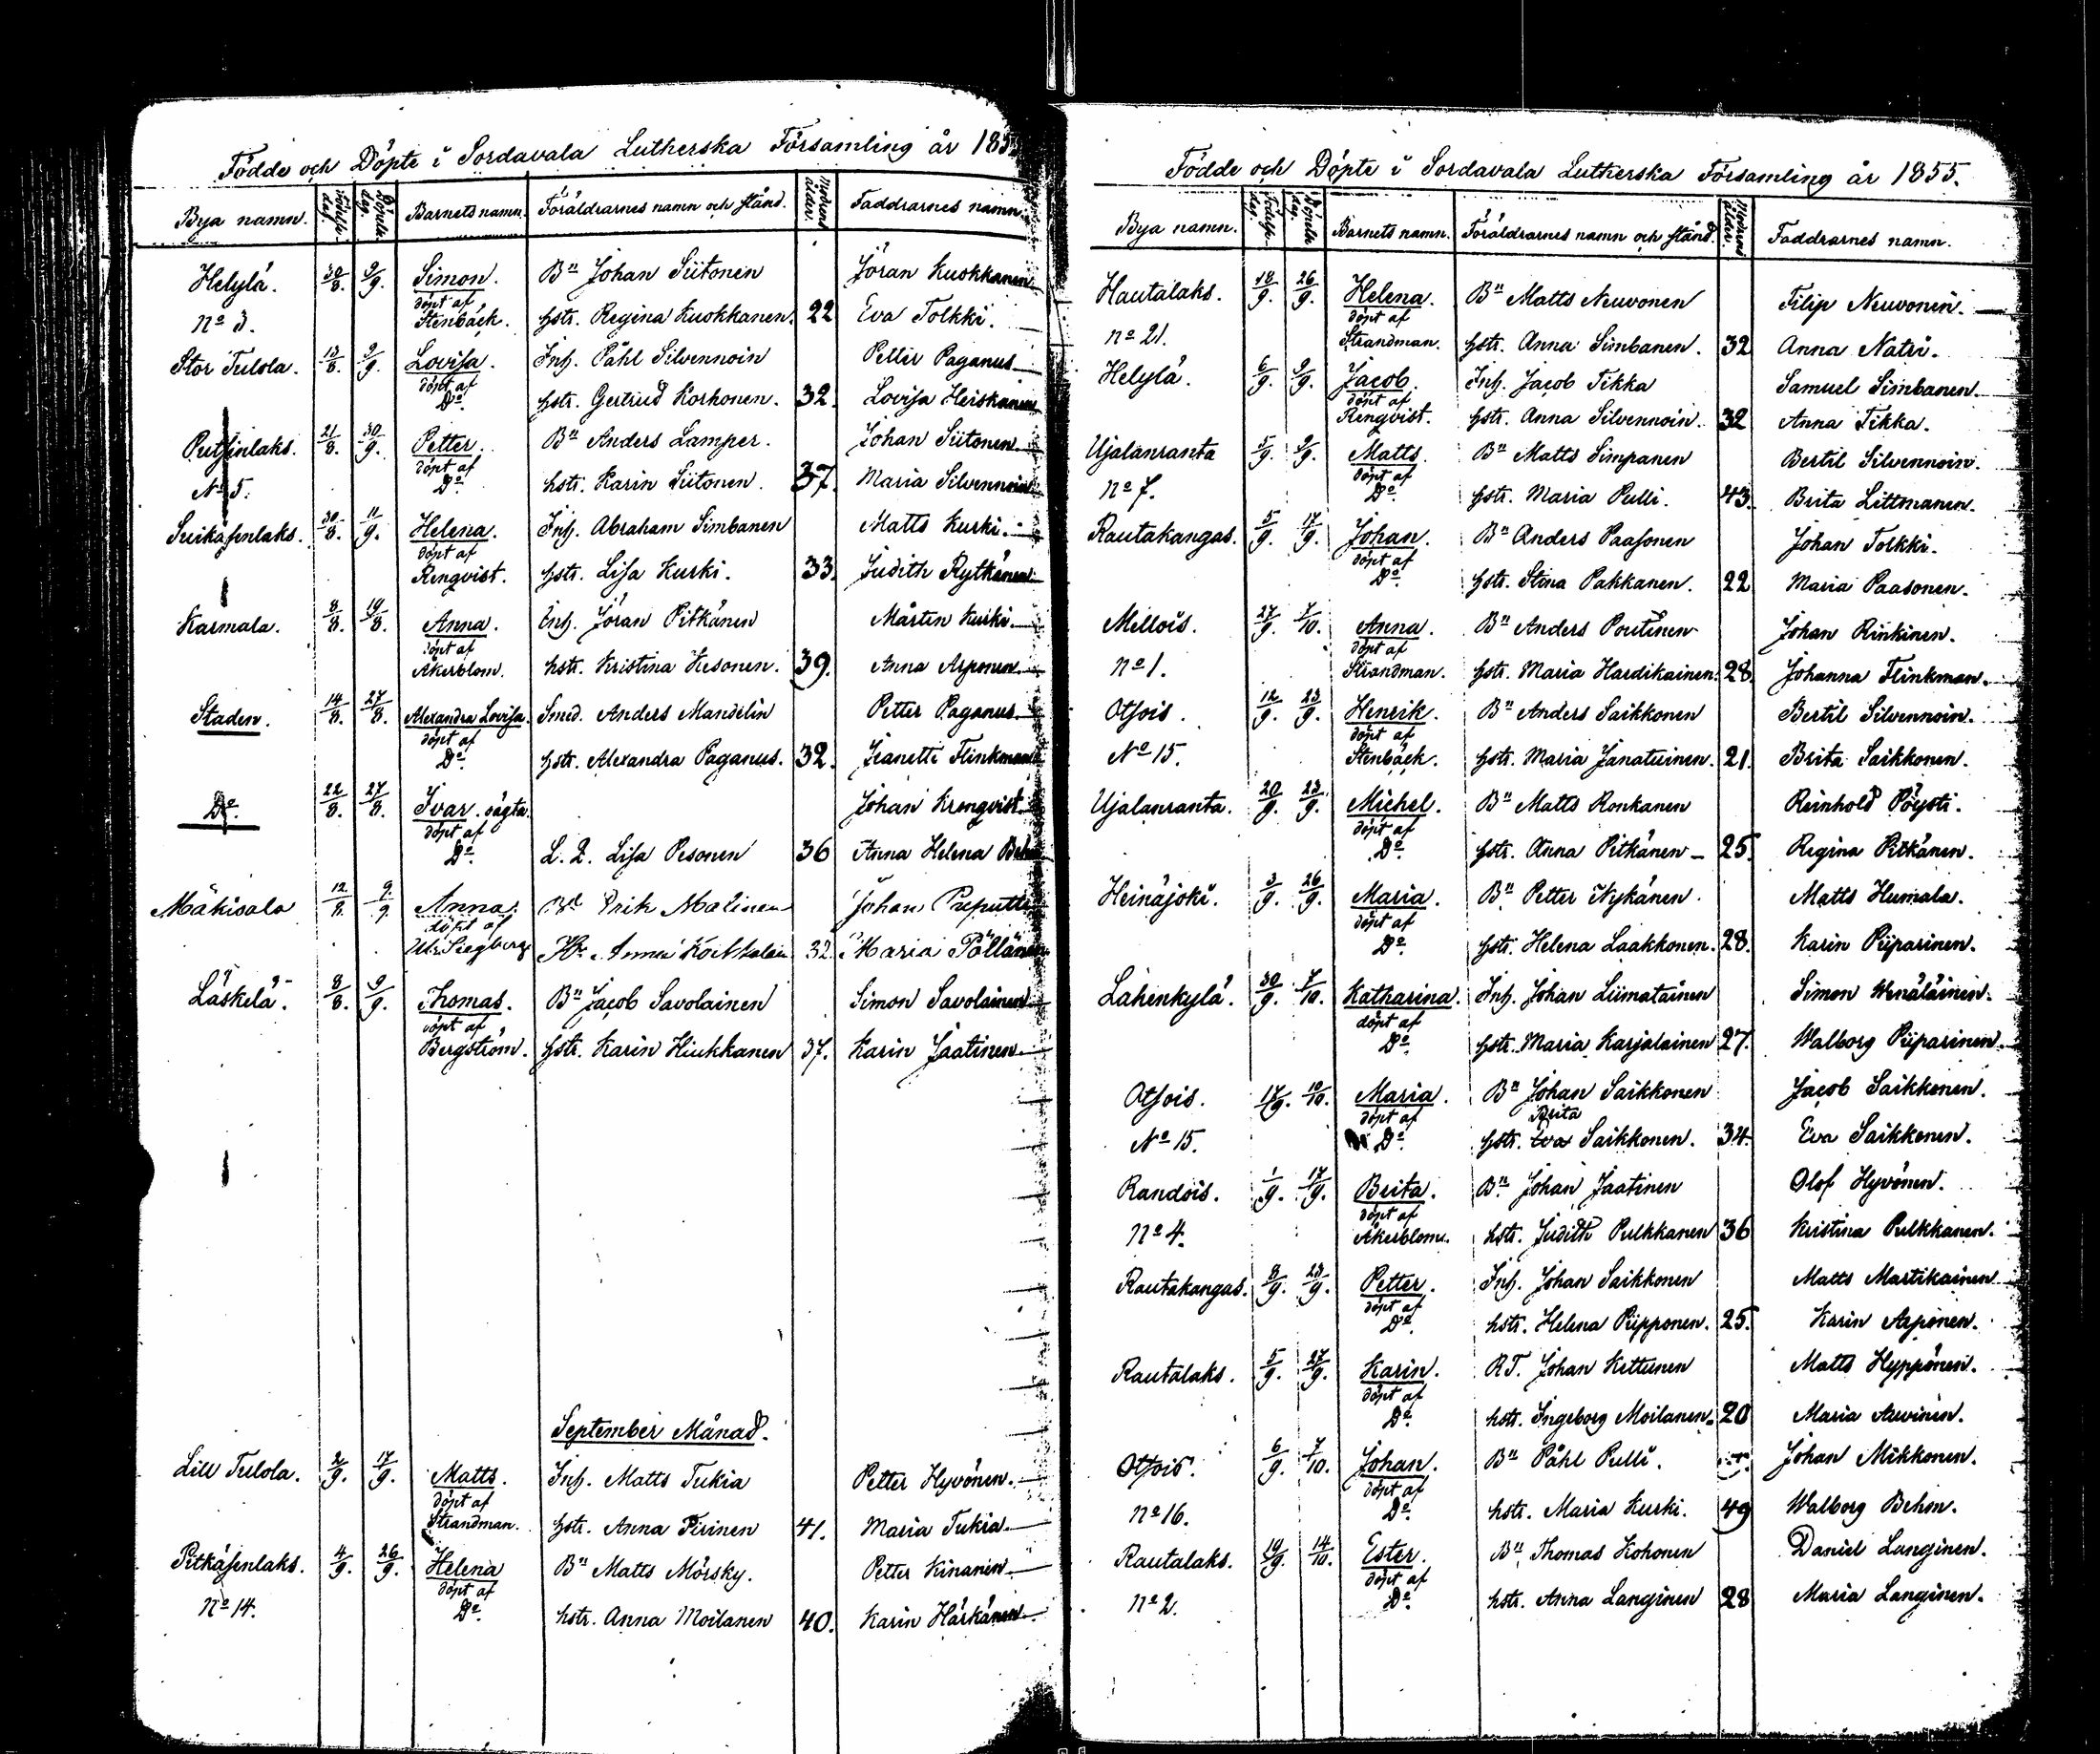 Födde och Döpte i Sordavala Lutherska Församling år 185
Bya namn. Födelse dag. Döpelse dag. Barnets namn. Föräldrarnes namn och stånd. Modrens ålder. Faddrarnes namn.
Helylä. 30/8. 9/9. Simon. Bn Johan Siitonen Jöran Kuokkanen
döpt af
No 3. Stenbäck. hstr. Regina Kuokkanen. 22 Eva Tolkki.
Stor Tulola. 13/8. 9/9. Lovisa. Inh. Påhl Silvennoin Petter Paganus
döpt af
Do. hstr. Gertrud Korhonen. 32. Lovisa Heiskanen
Putsinlaks. 21/8. 30/9. Petter. Bn Anders Lamper. Johan Siitonen
döpt af
No 5. Do. hstr. Karin Siitonen. 37. Maria Silvennoin
Suikasenlaks. 30/8. 11/9. Helena. Inh. Abraham Simbanen Matts Kurki.
döpt af
Renqvist. hstr. Lisa Kurki. 33. Judith Rytkönen
Karmala. 8/8. 19/8. Anna. Inh. Jöran Pitkänen Mårten Kurki.
döpt af
Åkerblom. hstr. Kristina Kesonen. 39. Anna Asponen
Staden. 14/8. 27/8. Alexandra Lovisa. Smed. Anders Mandelin Petter Paganus
döpt af
Do. hstr. Alexandra Paganus. 32. Jeanette Flinkman
Do. 22/8. 27/8. Ivar. oägta. Johan Krenqvist
döpt af
Do. L. Q. Lisa Pesonen 36 Anna Helena
Mäkisalo 12/8. 9/9 Anna. Bd Erik Malinen Johan
döpt af
Siegberg Anna 32. Maria Pöllänen
Läskelä. 8/8. 9/9. Thomas. Bn Jacob Savolainen Simon Savolainen
döpt af
Bergström. hstr. Karin Hiukkanen 37. Karin Jaatinen
September Månad.
Lill Tulola. 2/9. 17/9. Matts. Inh. Matts Tukia Petter Hyvönen.
döpt af
Strandman. hstr. Anna Piirinen 41. Maria Tukia.
Pitkäsenlaks. 4/9. 26/9. Helena Bn Matts Mörsky. Petter Kinanen
döpt af
No 14. Do. hstr. Anna Moilanen 40. Karin Härkänen
Födde och Döpte i Sordavala Lutherska Församling år 1855.
Bya namn. Födelse dag. Döpelse dag. Barnets namn. Föräldrarnes namn och stånd. Modrens ålder. Faddrarnes namn.
Hautalaks. 18/9. 26/9. Helena. Bn Matts Neuvonen Filip Neuvonen.
döpt af
No 21. Strandman. hstr. Anna Simbanen. 32 Anna Natri.
Helylä. 6/9. 9/9. Jacob. Inh. Jacob Tikka Samuel Simbanen.
döpt af
Renqvist. hstr. Anna Silvennoin. 32 Anna Tikka.
Ujalanranta 5/9. 9/9. Matts. Bn Matts Simpanen Bertil Silvennoin.
döpt af
No 7. Do. hstr. Maria Pulli. 43. Brita Littmanen.
Rautakangas. 5/9. 17/9. Johan. Bn Anders Paasonen Johan Tolkki.
döpt af
Do. hstr. Stina Pakkanen. 22 Maria Paasonen.
Mellois. 27/9. 7/10. Anna. Bn Anders Poutinen Johan Rinkinen.
döpt af
No 1. Strandman. hstr. Maria Hardikainen. 28 Johanna Flinkman.
Otsois. 12/9. 23/9. Henrik. Bn Anders Saikkonen Bertil Silvennoin.
döpt af
No 15. Stenbäck. hstr. Maria Janatuinen. 21. Brita Saikkonen.
Ujalanranta. 20/9. 23/9. Michel. Bn Matts Ronkanen Reinhold Pöysti.
döpt af
Do. hstr. Anna Pitkänen 25. Regina Pitkänen.
Heinäjoki. 3/9. 26/9. Maria. Bn Petter Nykänen. Matts Humala.
döpt af
Do. hstr. Helena Laakkonen. 28. Karin Piiparinen.
Lahenkylä. 30/9. 7/10. Katharina. Inh. Johan Liimatainen Simon Wenäläinen.
döpt af
Do. hstr. Maria Karjalainen 27. Walborg Piiparinen.
Otsois. 17/9. 10/10. Maria. Bn Johan Saikkonen Jacob Saikkonen.
döpt af Brita
No 15. Do. hstr. Eva Saikkonen. 34. Eva Saikkonen.
Randois. 1/9. 17/9. Brita. Bn Johan Jaatinen Olof Hyvönen.
döpt af
No 4. Åkerblom. hstr. Judith Pulkkanen 36 Kristina Pulkkanen.
Rautakangas. 8/9. 23/9. Petter. Inh. Johan Saikkonen Matts Martikainen
döpt af
Do. hstr. Helena Piipponen. 25. Karin Asponen.
Rautalaks. 5/9. 27/9. Karin. RT. Johan Kettunen Matts Hyppönen.
döpt af
Do. hstr. Ingeborg Moilanen. 20 Maria Auvinen.
Otsois. 6/9. 7/10. Johan. Bn Påhl Pulli. Johan Mikkonen.
döpt af
No 16. Do. hstr. Maria Kurki. 49 Walborg Behm.
Rautalaks. 19/9. 14/10. Ester. Bn Thomas Kohonen Daniel Langinen.
döpt af
No 2. Do. hstr. Anna Langinen 28 Maria Langinen.